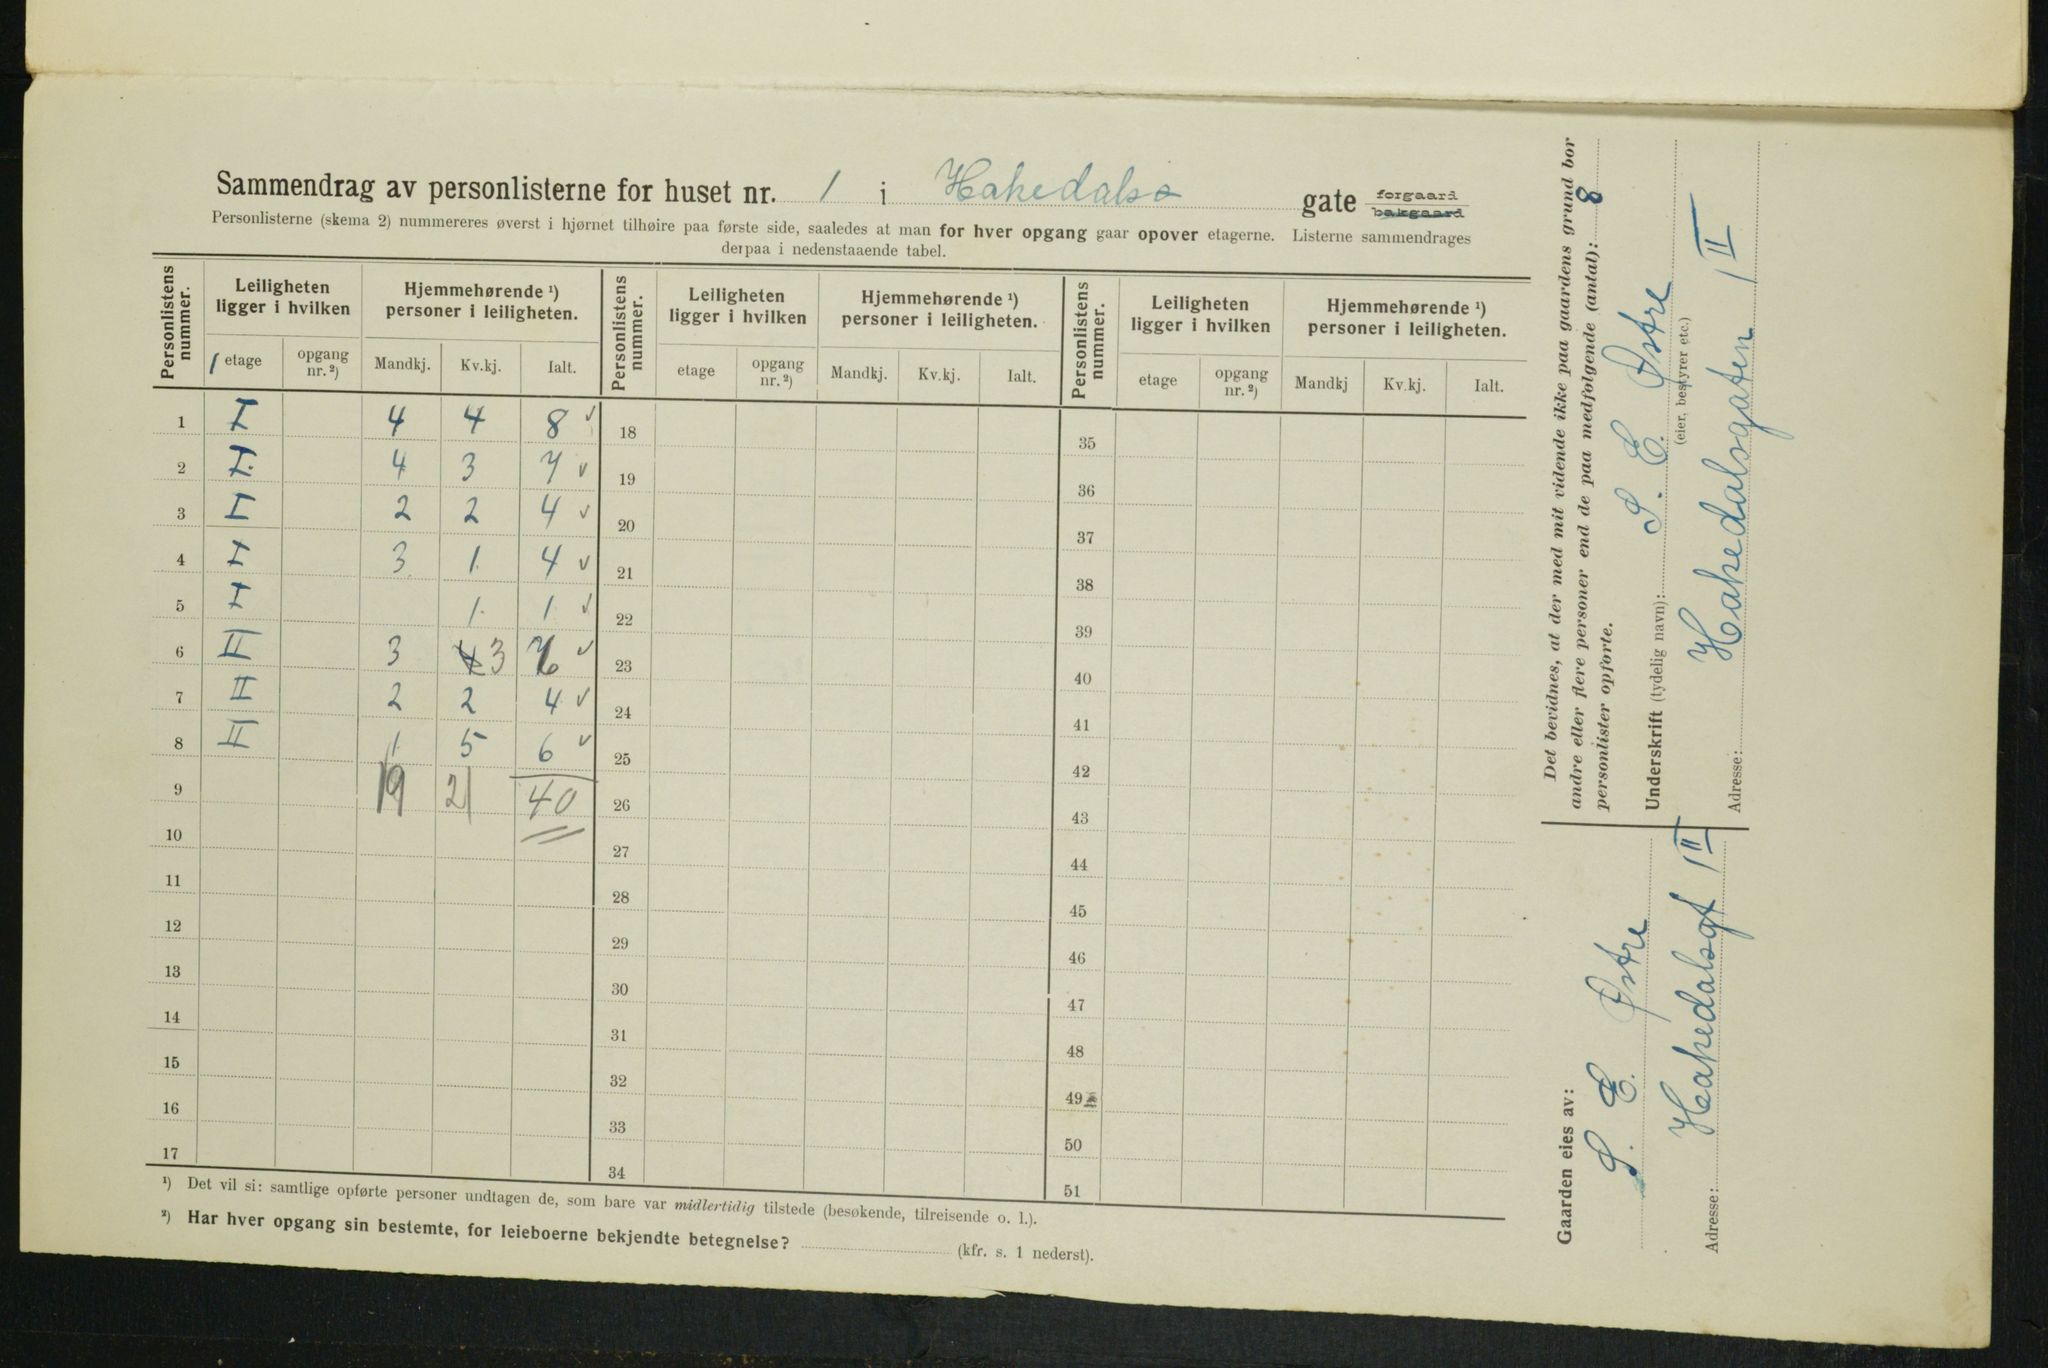 Sammendrag av personlisterne for huset nr. 1 i Hakedals gate forgaard bakgaard
Personlisterne (skema 2) nummereres øverst i hjørnet tilhøire paa første side, saaledes at man for hver opgang gaar opover etagerne. Listerne sammendrages
derpaa i nedenstaaende tabel.
Personlistens nummer. Leiligheten ligger i hvilken Hjemmehørende ¹) personer i leiligheten. Personlistens nummer. Leiligheten ligger i hvilken Hjemmehørende ¹) personer i leiligheten. Personlistens nummer. Leiligheten ligger i hvilken Hjemmehørende ¹) personer i leiligheten.
etage opgang nr. ²) Mandkj. Kv.kj. Ialt. etage opgang nr. ²) Mandkj. Kv.kj. Ialt. etage opgang nr. ²) Mandkj Kv.kj. Ialt.
1 I 4 4 8 ✓ 18 35
2 I. 4 3 7 ✓ 19 36
3 I 2 2 4 ✓ 20 37
4 I 3 1. 4 ✓ 21 38
5 I 1. 1. ✓ 22 39
6 II 3 4 3 7 6 ✓ 23 40
7 II 2 2 4 ✓ 24 41
8 II 1 5 6 ✓ 25 42
9 19 21 40 26 43
10 27 44
11 28 45
12 29 46
13 30 47
14 31 48
15 32 49
16 33 50
17 34 51
¹) Det vil si: samtlige opførte personer undtagen de, som bare var midlertidig tilstede (besøkende, tilreisende o. l.).
²) Har hver opgang sin bestemte, for leieboerne bekjendte betegnelse? (kfr. s. 1 nederst).
Det bevidnes, at der med mit vidende ikke paa gaardens grund bor
andre eller flere personer end de paa medfølgende (antal): 8
personlister opførte.
Underskrift (tydelig navn): S. E. Østre
(eier, bestyrer etc.)
Adresse: Hakedalsgaten 1 II
Gaarden eies av:
S. E. Østre
Adresse: Hakedalsgt 1 II